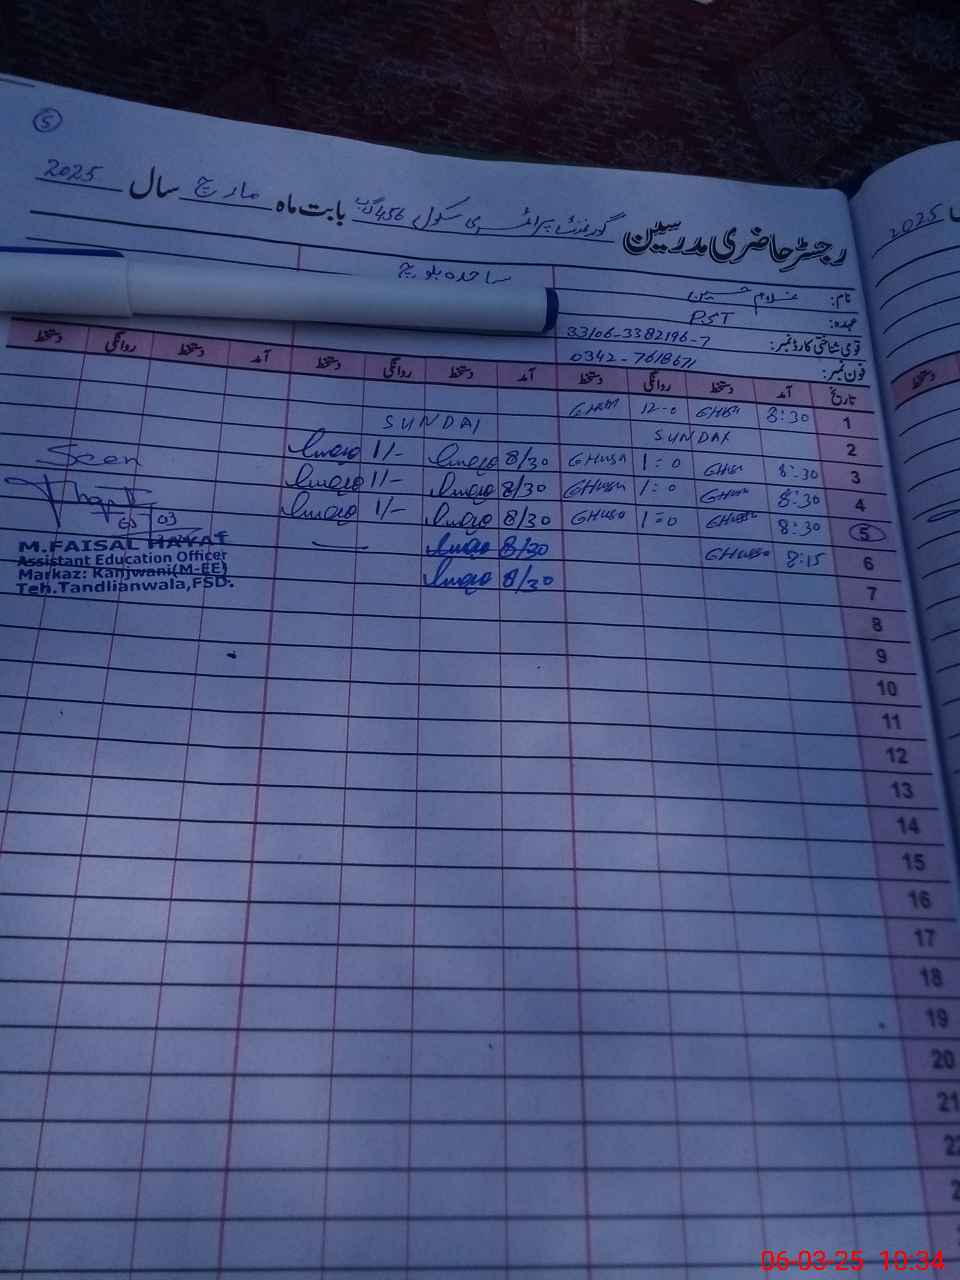 5
رجسٹر حاضری مدرسین گورنمنٹ پرائمری سکول 456 گ ب بابت ماہ مارچ سال 2025
نام: غلام حسین
ساجدہ بلوچ
عہدہ: PST
قومی شناختی کارڈ نمبر: 33106-3382196-7
فون نمبر: 0342-7618671
تاریخ آمد دستخط روانگی دستخط آمد دستخط روانگی دستخط آمد دستخط روانگی دستخط
1 8:30 12-0
2 SUNDAY SUNDAY
3 8:30 1:0 8/30 1/-
4 8:30 1:0 8/30 1/-
5 8:30 1=0 8/30 1/-
6 8:15 8/30
7 8/30
8
9
10
11
12
13
14
15
16
17
18
19
20
21
22
Seen
03
M.FAISAL HAYAT
Assistant Education Officer
Markaz: Kanjwani(M-EE)
Teh.Tandlianwala,FSD.
2025
دستخط
06-03-25 10:34